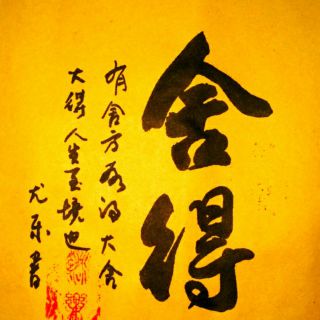 舍得
有舍方有得大舍
大得人生至境也
尤乐书